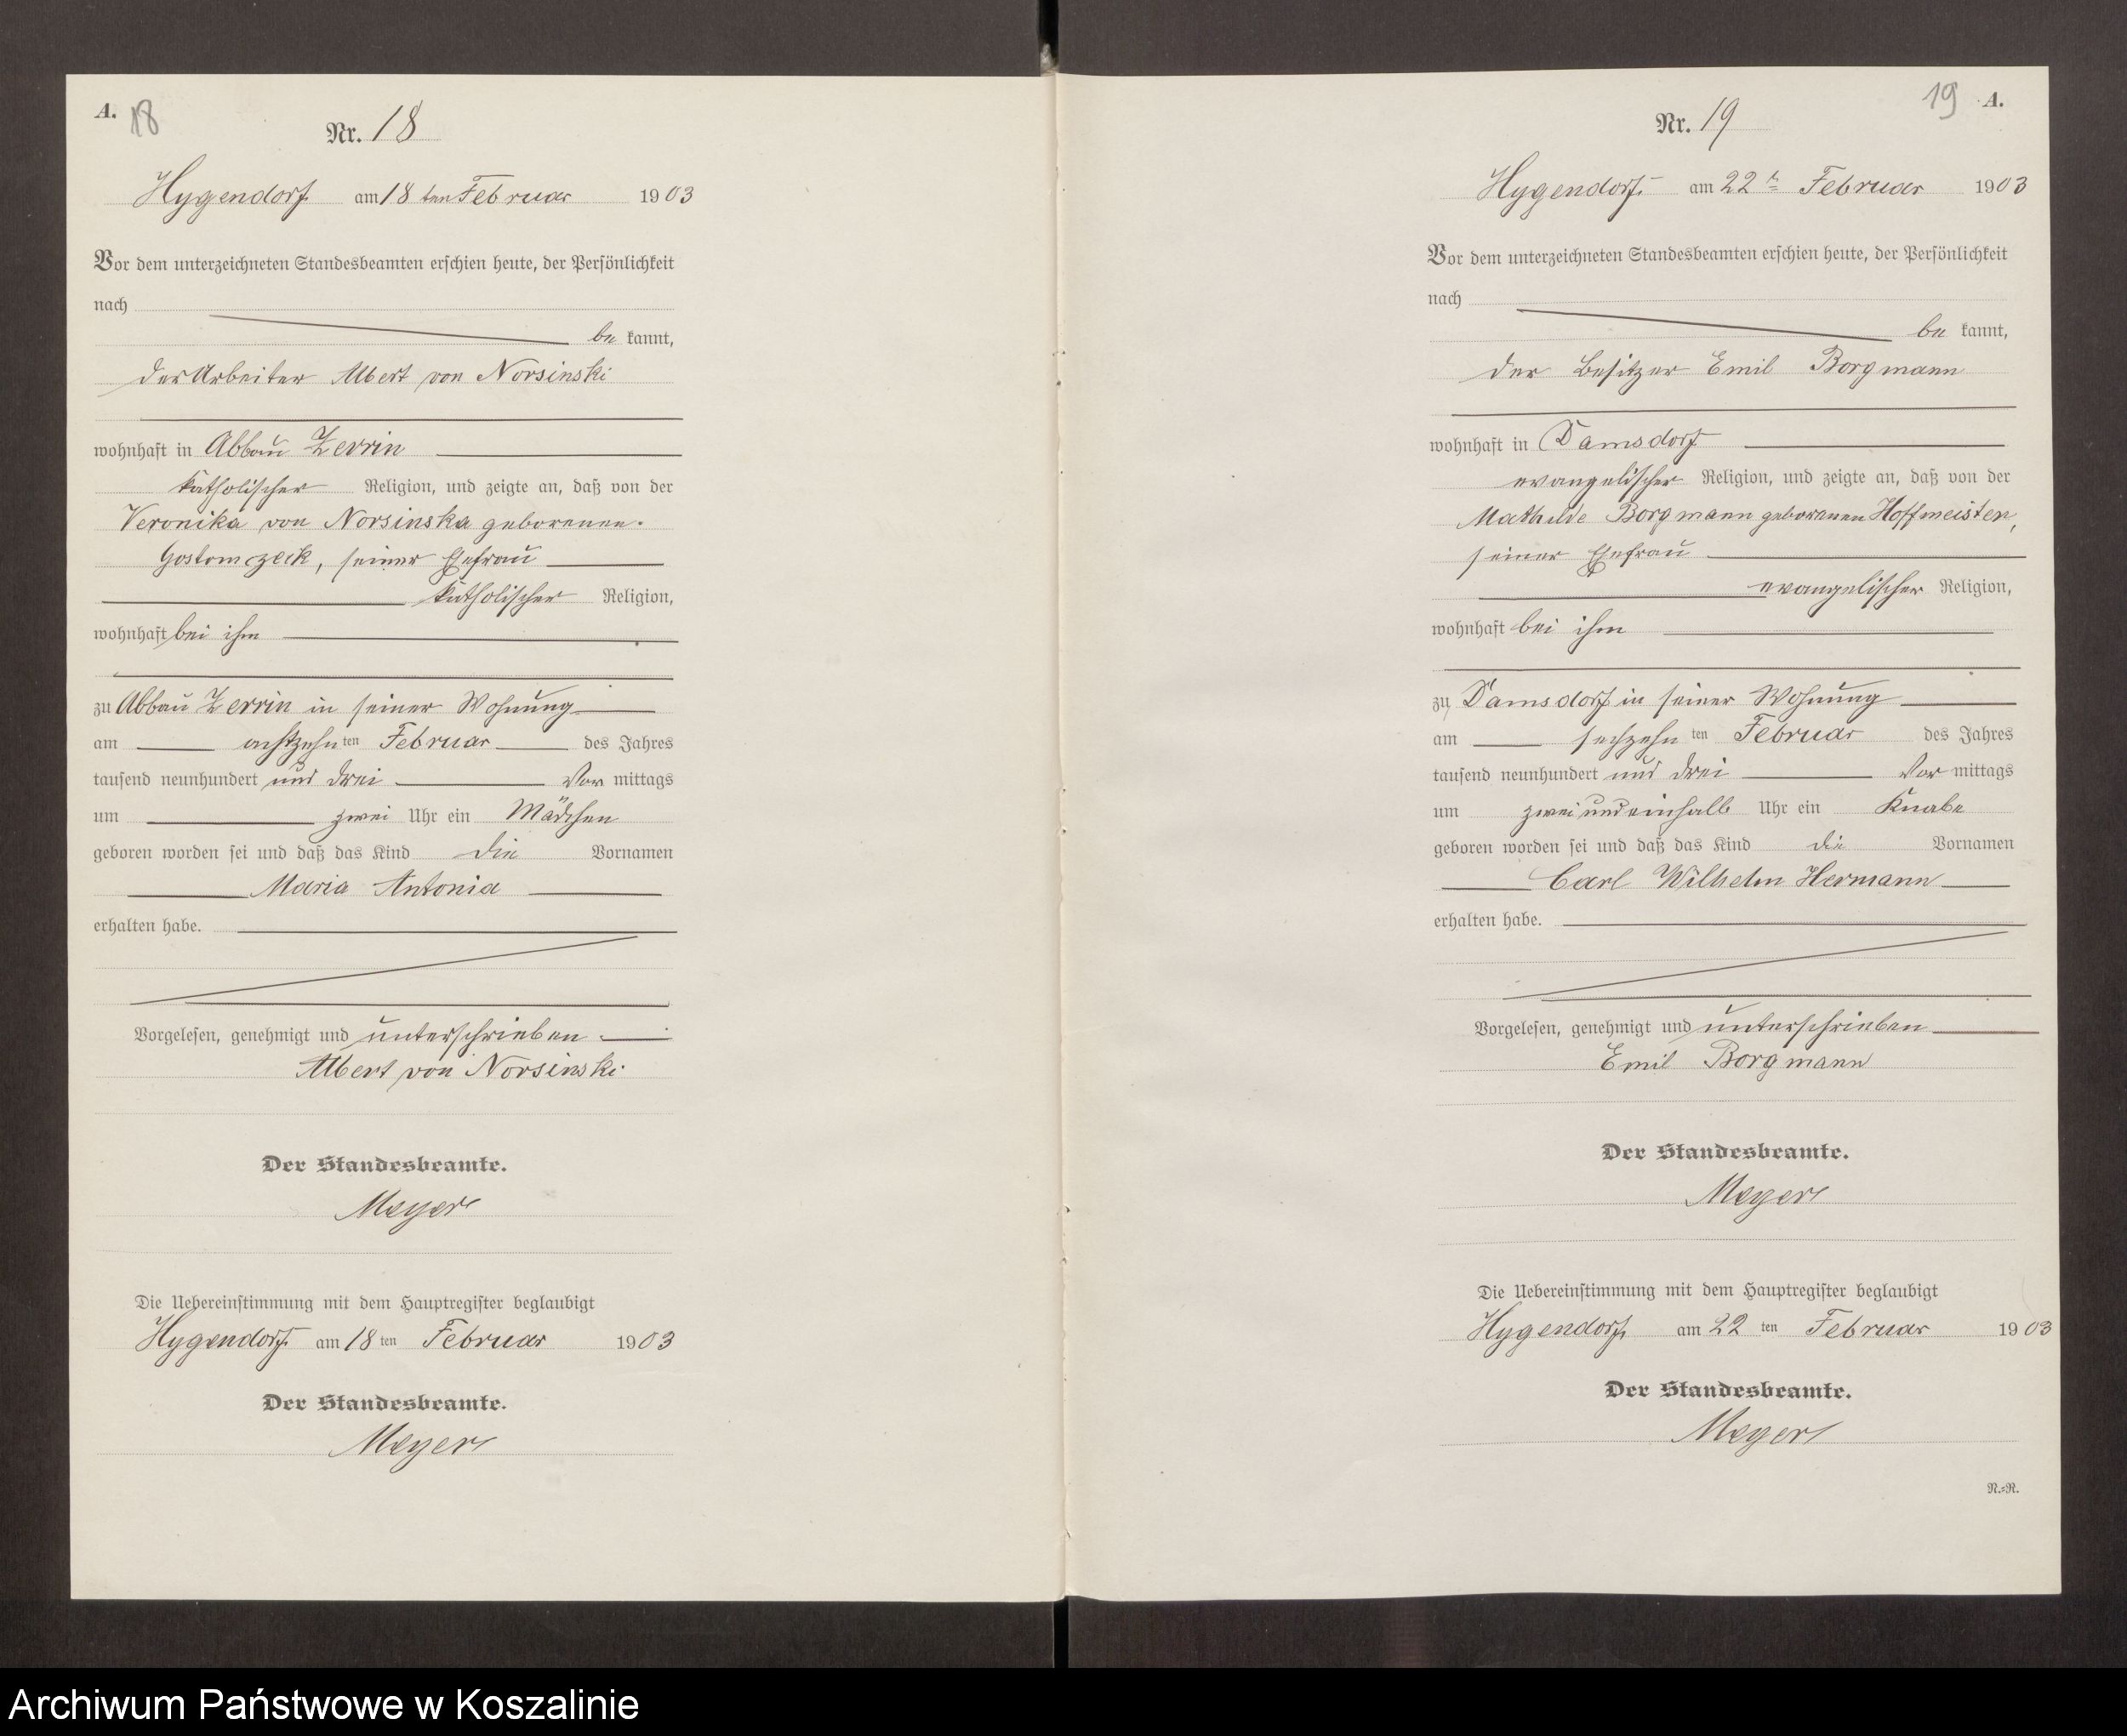 A. 18
Nr. 18
Hygendorf am 18 ten Februar 1903
Vor dem unterzeichneten Standesbeamten erschien heute, der Persönlichkeit
nach
be kannt,
der Arbeiter Albert von Norsinski
wohnhaft in Abbau Zerrin
katholischer Religion, und zeigte an, daß von der
Veronika von Norsinska geborenen
Gostomczeik, seiner Ehefrau
katholischer Religion,
wohnhaft bei ihm
zu Abbau Zerrin in seiner Wohnung
am achtzehn ten Februar des Jahres
tausend neunhundert und drei Vor mittags
um zwei Uhr ein Mädchen
geboren worden sei und daß das Kind die Vornamen
Maria Antonia
erhalten habe.
Vorgelesen, genehmigt und unterschrieben.
Albert von Norsinski
Der Standesbeamte.
Meyer
Die Uebereinstimmung mit dem Hauptregister beglaubigt
Hygendorf am 18 ten Februar 1903
Der Standesbeamte.
Meyer
19 A.
Nr. 19
Hygendorf am 22 t. Februar 1903
Vor dem unterzeichneten Standesbeamten erschien heute, der Persönlichkeit
nach
be kannt,
der Besitzer Emil Borgmann
wohnhaft in Damsdorf
evangelischer Religion, und zeigte an, daß von der
Mathilde Borgmann geborenen Hoffmeister,
seiner Ehefrau
evangelischer Religion,
wohnhaft bei ihm
zu Damsdorf in seiner Wohnung
am sechzehn ten Februar des Jahres
tausend neunhundert und drei Vor mittags
um zwei und einhalb Uhr ein Knabe
geboren worden sei und daß das Kind die Vornamen
Carl Wilhelm Hermann
erhalten habe.
Vorgelesen, genehmigt und unterschrieben
Emil Borgmann
Der Standesbeamte.
Meyer
Die Uebereinstimmung mit dem Hauptregister beglaubigt
Hygendorf, am 22 ten Februar 1903
Der Standesbeamte.
Meyer
N.-R.
Archiwum Państwowe w Koszalinie